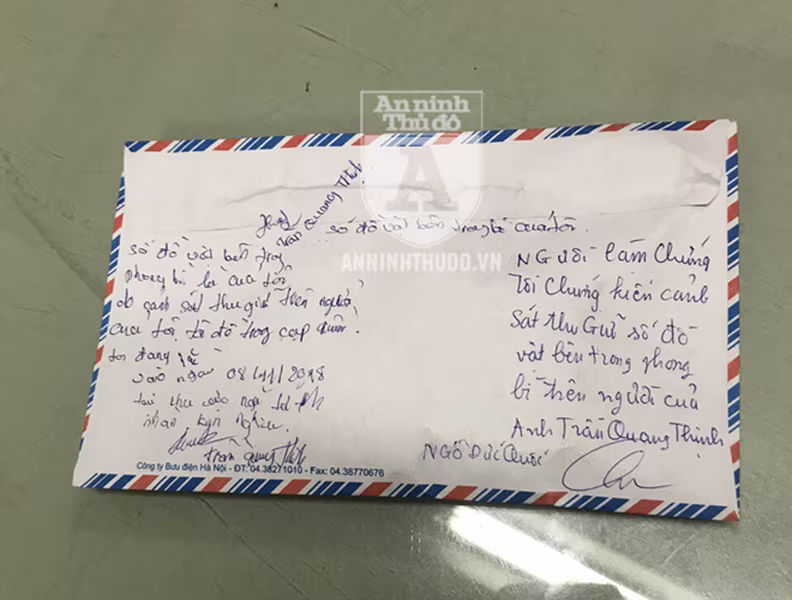 An ninh
Thủ đô
A
ANNINHTHUDO.VN
Trần Quang Thịnh
số đồ vật bên trong bì của tôi.
số đồ vật bên trong
phong bì là của tôi
do cảnh sát thu giữ trên người
của tôi,
vào ngày 08/11/2018
Trần Quang Thịnh
Người làm Chứng
Tôi Chứng kiến cảnh
Sát thu Giữ số đồ
vật bên trong phong
bì trên người của
Anh Trần Quang Thịnh
NGÔ ĐỨC
Công ty Bưu điện Hà Nội - ĐT: 04.38271010 - Fax: 04.38770676